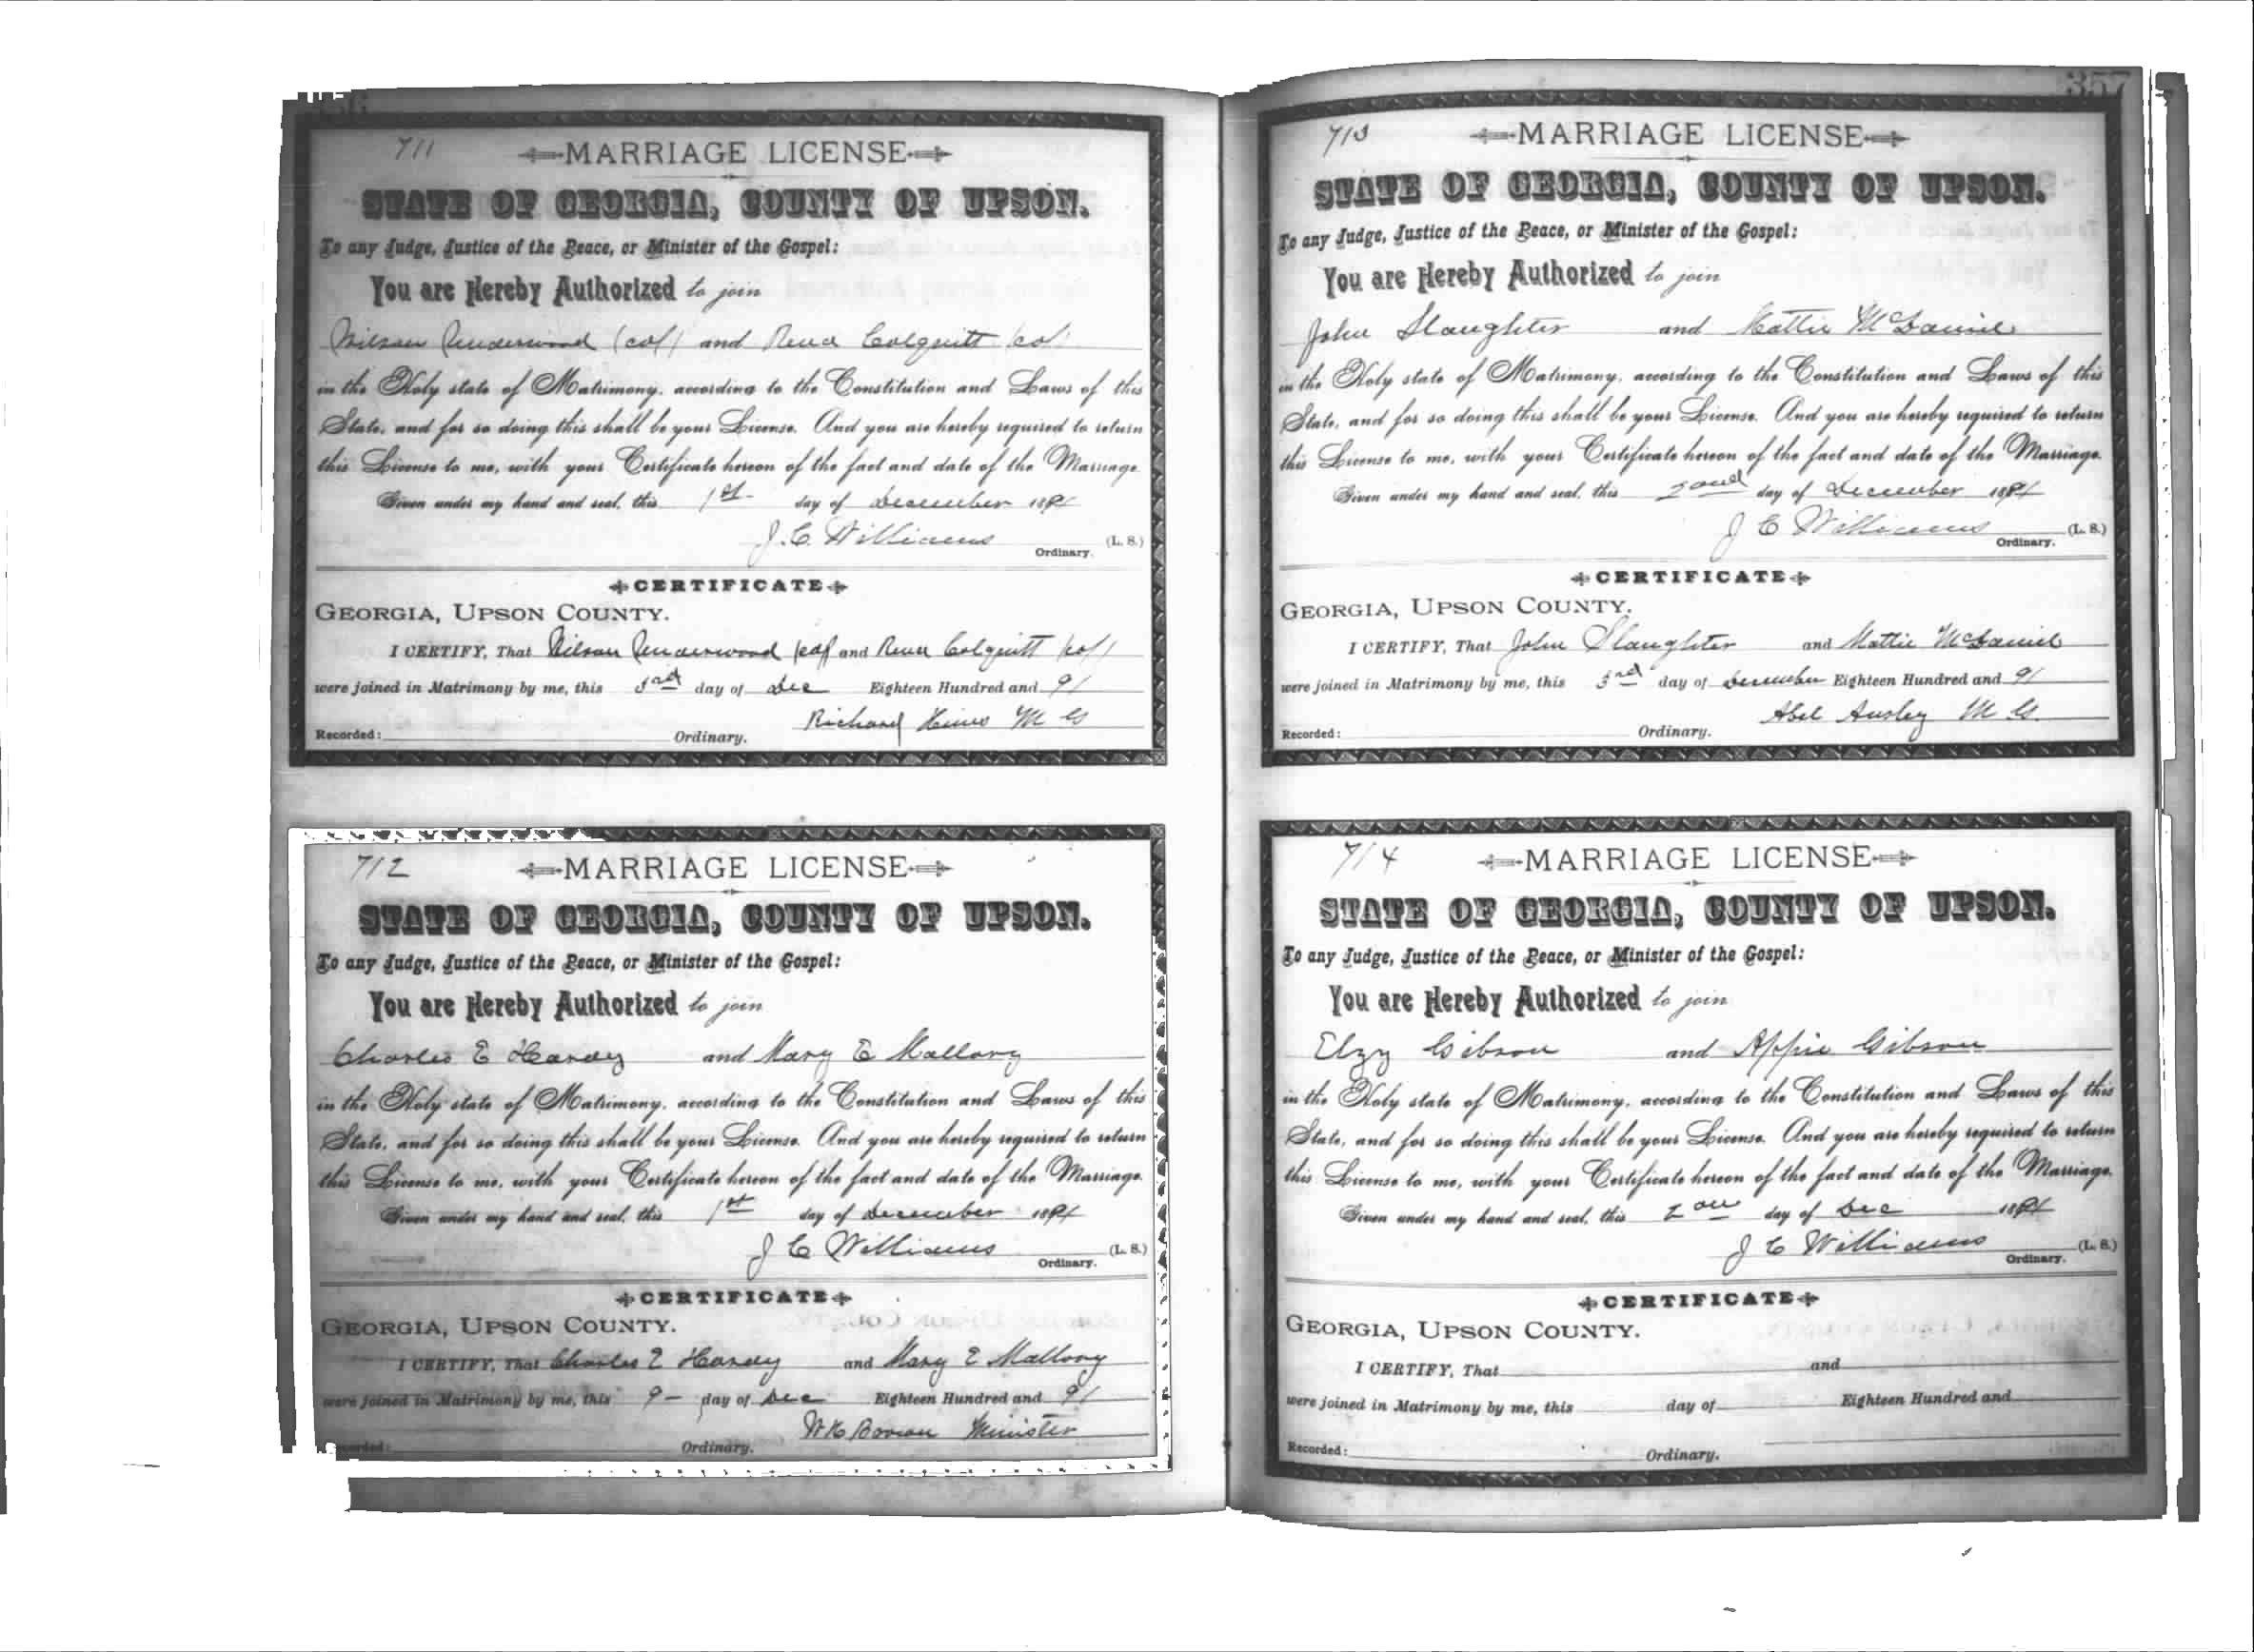 711
MARRIAGE LICENSE
STATE OF GEORGIA, COUNTY OF UPSON.
To any Judge, Justice of the Peace, or Minister of the Gospel:
You are Hereby Authorized to join
Wilson Underwood (col) and Rena Colquitt (col)
in the Holy state of Matrimony, according to the Constitution and Laws of this
State, and for so doing this shall be your License. And you are hereby required to return
this License to me, with your Certificate hereon of the fact and date of the Marriage.
Given under my hand and seal, this 1st day of December 1891
J. C. Williams (L. S.)
Ordinary.
CERTIFICATE
GEORGIA, UPSON COUNTY.
I CERTIFY, That Wilson Underwood (col) and Rena Colquitt (col)
were joined in Matrimony by me, this 3rd day of Dec Eighteen Hundred and 91
Richard M G
Recorded: Ordinary.
712
MARRIAGE LICENSE
STATE OF GEORGIA, COUNTY OF UPSON.
To any Judge, Justice of the Peace, or Minister of the Gospel:
You are Hereby Authorized to join
Charles E Hardy and Mary E Mallory
in the Holy state of Matrimony, according to the Constitution and Laws of this
State, and for so doing this shall be your License. And you are hereby required to return
this License to me, with your Certificate hereon of the fact and date of the Marriage.
Given under my hand and seal, this 1st day of December 1891
J C Williams (L. S.)
Ordinary.
CERTIFICATE
GEORGIA, UPSON COUNTY.
I CERTIFY, That Charles E Hardy and Mary E Mallory
were joined in Matrimony by me, this 9 – day of Dec Eighteen Hundred and 91
Minister
Recorded: Ordinary.
357
713
MARRIAGE LICENSE
STATE OF GEORGIA, COUNTY OF UPSON.
To any Judge, Justice of the Peace, or Minister of the Gospel:
You are Hereby Authorized to join
John Slaughter and Mattie McDaniel
in the Holy state of Matrimony, according to the Constitution and Laws of this
State, and for so doing this shall be your License. And you are hereby required to return
this License to me, with your Certificate hereon of the fact and date of the Marriage.
Given under my hand and seal, this 2ond day of December 1891
J C Williams (L. S.)
Ordinary.
CERTIFICATE
GEORGIA, UPSON COUNTY.
I CERTIFY, That John Slaughter and Mattie McDaniel
were joined in Matrimony by me, this 3rd day of December Eighteen Hundred and 91
Abel Ansley M G.
Recorded: Ordinary.
714
MARRIAGE LICENSE
STATE OF GEORGIA, COUNTY OF UPSON.
To any Judge, Justice of the Peace, or Minister of the Gospel:
You are Hereby Authorized to join
Elzy Gibson and Appie Gibson
in the Holy state of Matrimony, according to the Constitution and Laws of this
State, and for so doing this shall be your License. And you are hereby required to return
this License to me, with your Certificate hereon of the fact and date of the Marriage.
Given under my hand and seal, this 2on day of Dec 1891
J C Williams (L. S.)
Ordinary.
CERTIFICATE
GEORGIA, UPSON COUNTY.
I CERTIFY, That and
were joined in Matrimony by me, this day of Eighteen Hundred and
Recorded: Ordinary.